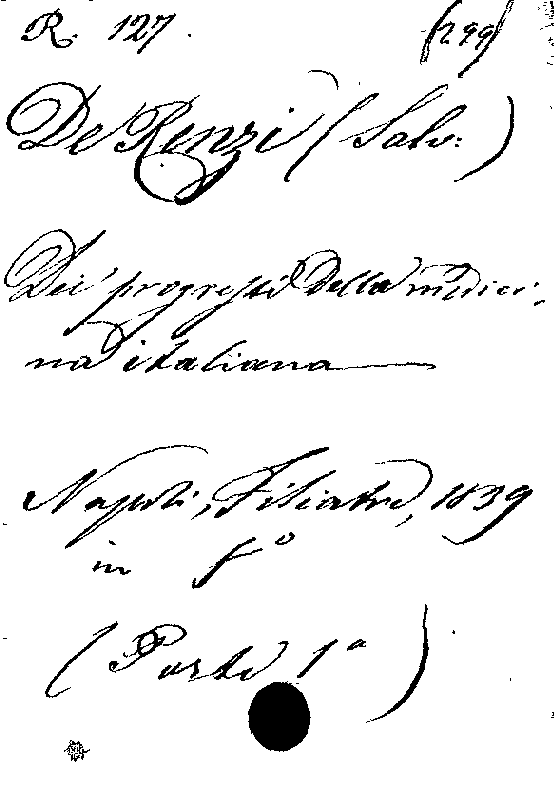 R. 127. (299)
De Renzi (Salv:)
Dei progressi della medici-
na italiana
Napoli, Filiatre, 1839
in f°
(Parte 1ª)